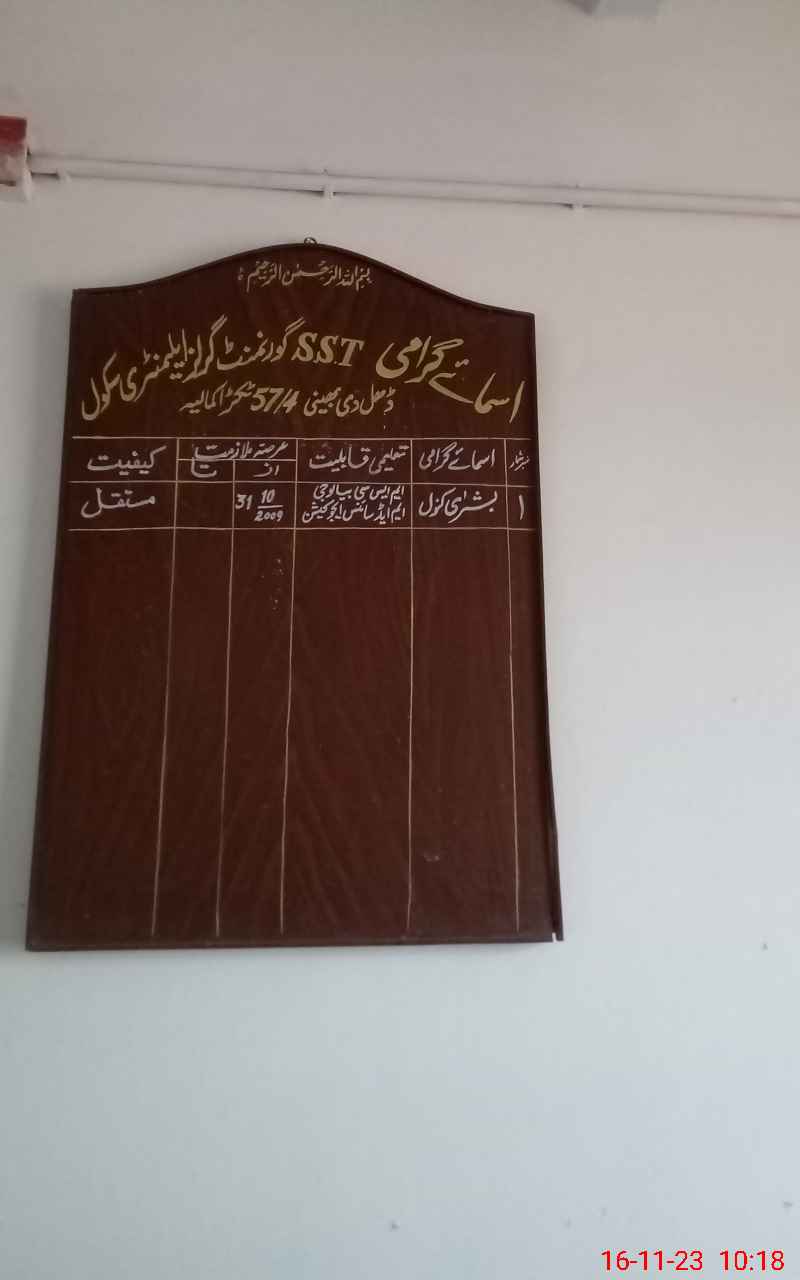 بسم اللہ الرحمٰن الرحیم ہ
اسمائے گرامی S.S.T گورنمنٹ گرلز ایلیمنٹری سکول
ڈھل دی بھینی 57/4 ٹکڑا کمالیہ
نمبرشمار اسمائے گرامی تعلیمی قابلیت عرصہ ملازمت کیفیت
از تا
۱ بشریٰ کنول ایم ایس سی بیالوجی 31 10/2009 مستقل
ایم ایڈ سائنس ایجوکیشن
16-11-23 10:18